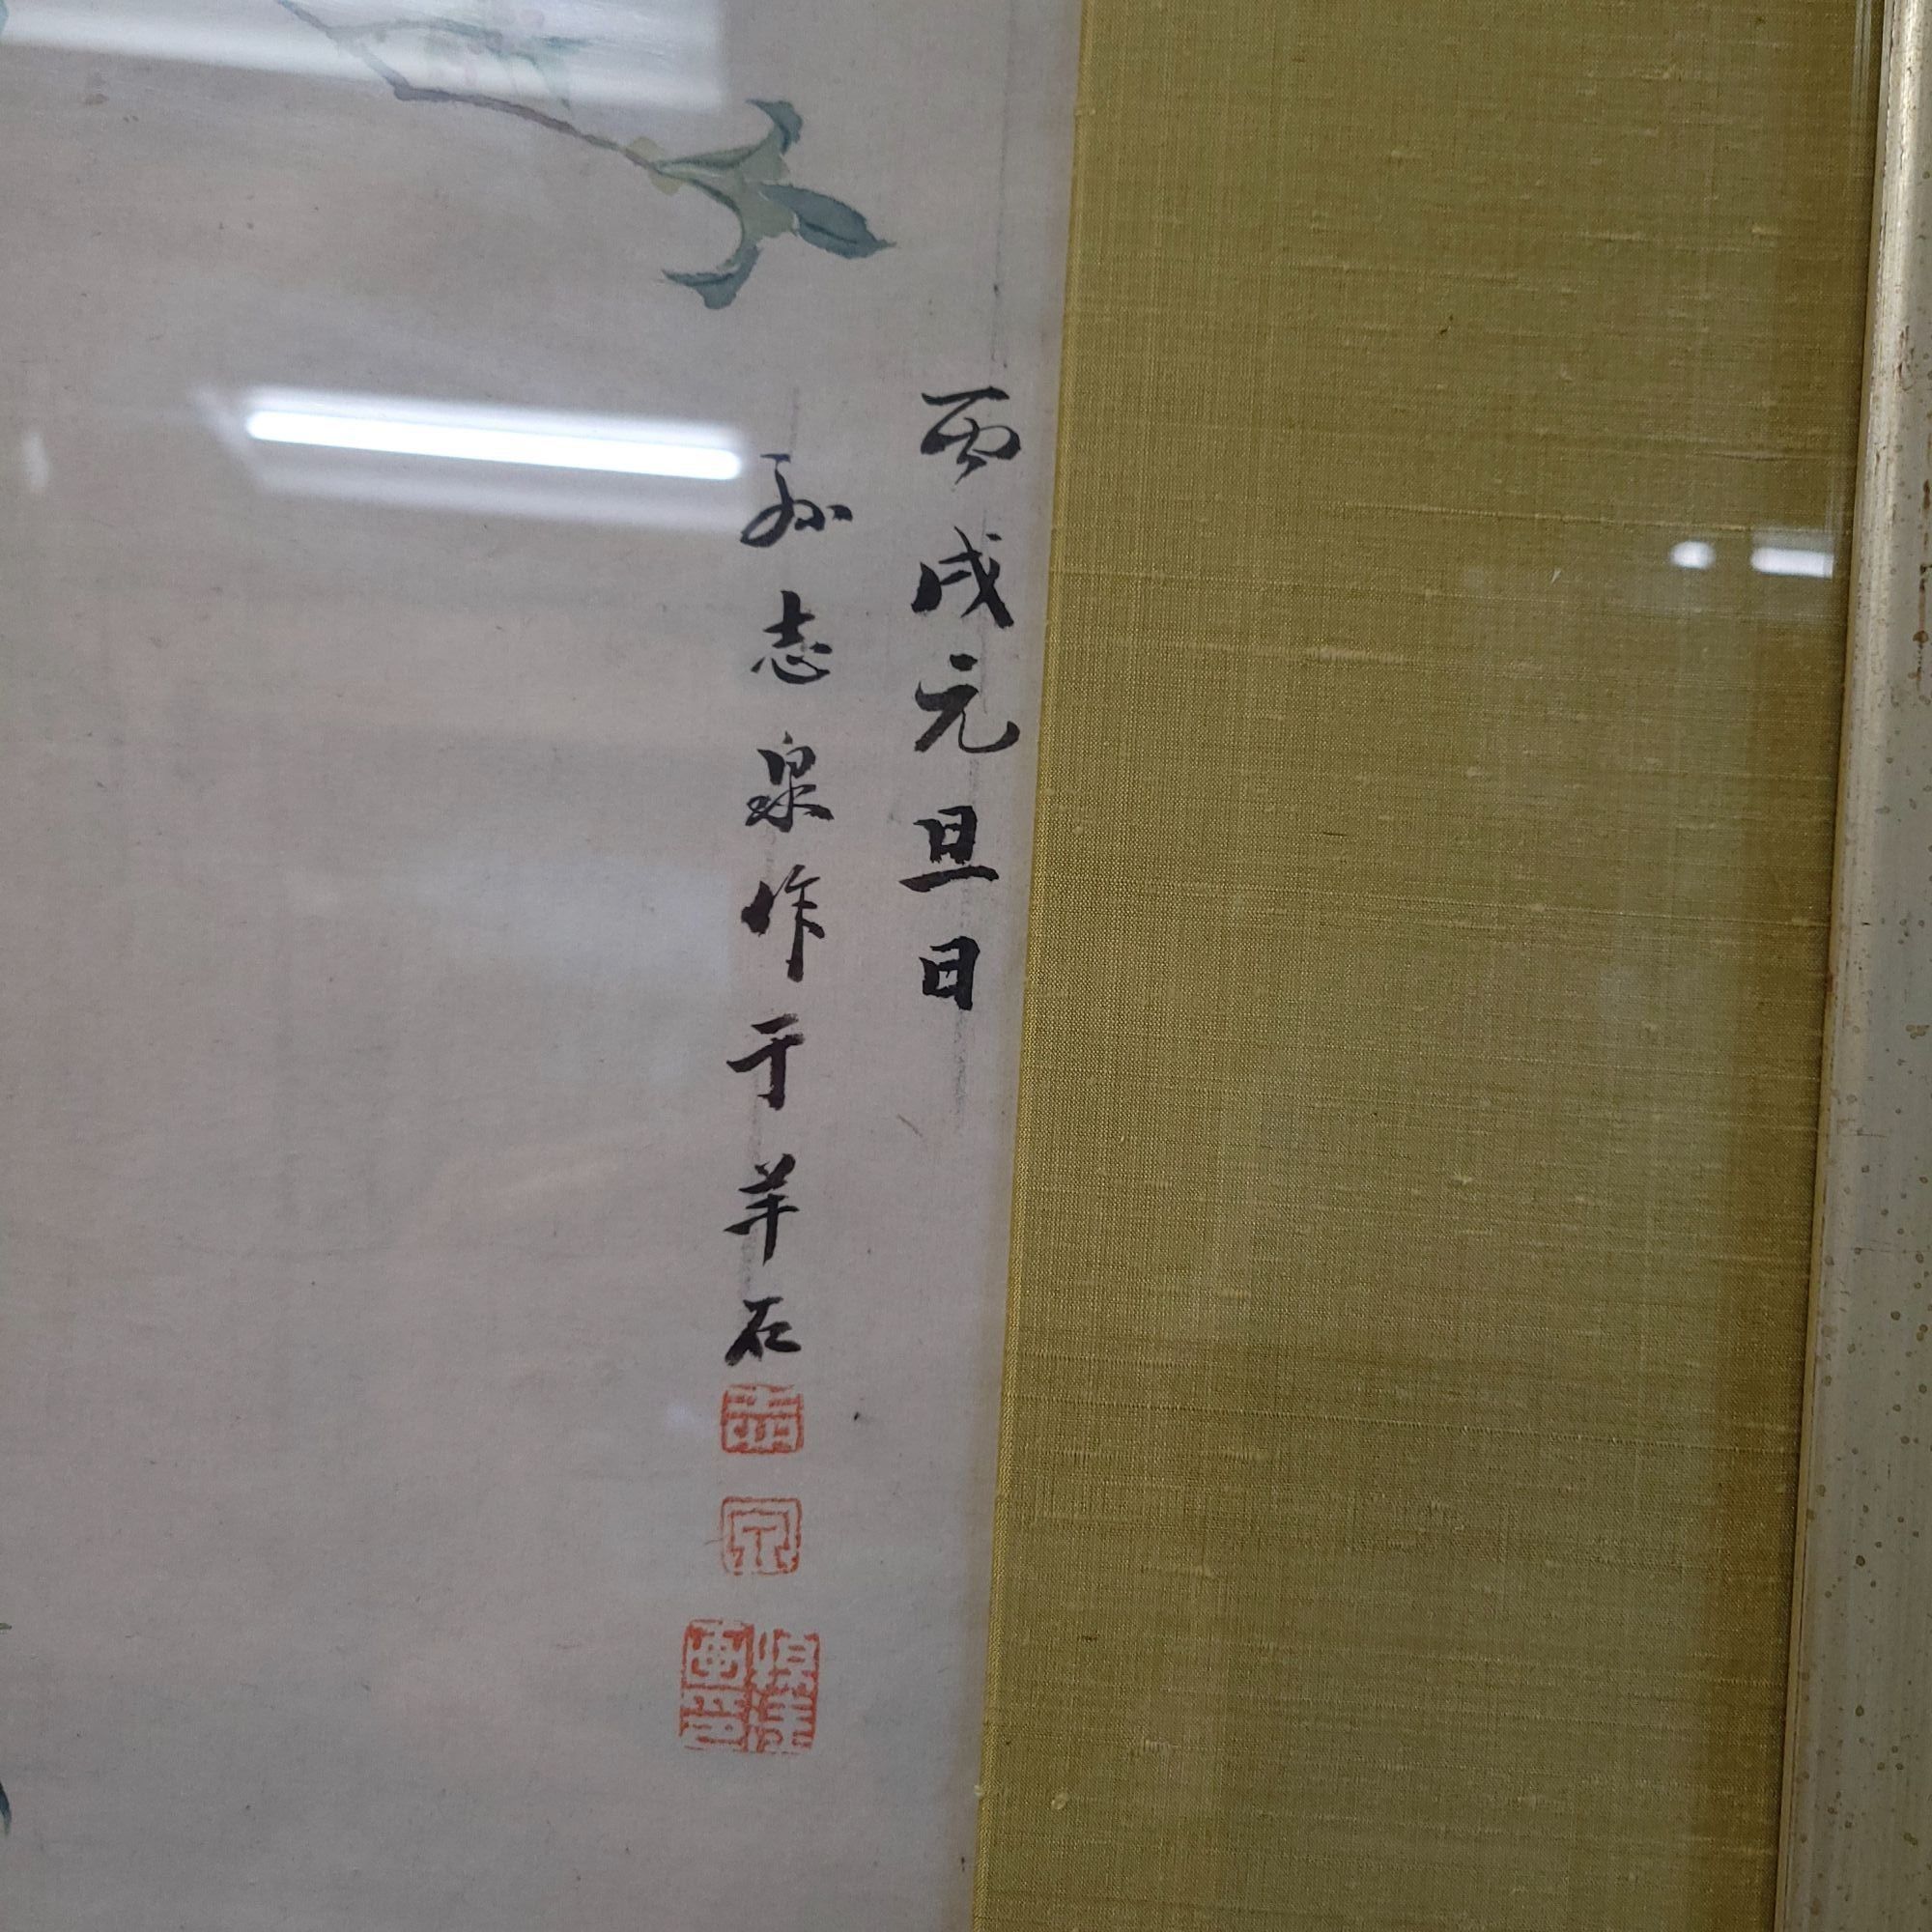 丙戌元旦日
孙志泉作于羊石
志
泉